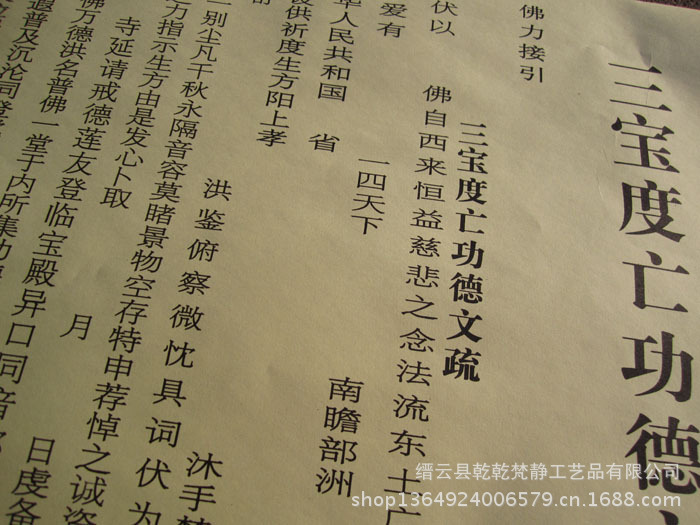 三宝度亡功德
佛力接引
三宝度亡功德文疏
佛自西来恒益慈悲之念法流东土广
伏以
一四天下
南瞻部洲
爱有
华人民共和国 省
设供祈度生方阳上孝
洪鉴俯察微忱具词伏为
沐手
一别尘凡千秋永隔音容莫睹景物空存特申荐悼之诚
力指示生方由是发心卜取
寺延请戒德莲友登临宝殿异口同音
月
日虔备
佛万德洪名普佛一堂于内所集功
遐普及沉沦同登
缙云县乾乾梵静工艺品有限公司
shop1364924006579.cn.1688.com